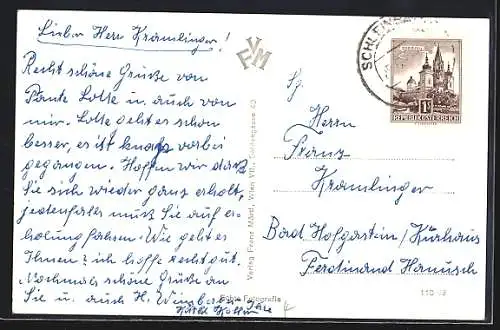 Lieber Herr Kramlinger!
Recht schöne Grüße von
Tante Lotte u. auch von
mir. Lotte geht es schon
besser, es ist knapp vorbei
gegangen. Hoffen wir daß
Sie sich wieder ganz erholt,
jedenfalls muß Sie auf er-
holung fahren. Wie geht es
Ihnen? ich hoffe recht gut.
Nochmals schöne Grüße an
Sie u. auch H.
Ihre
VFM
Verlag Franz Mörtl, Wien VII.,
Echte Fotografie
SCHLEINBACH
1S
REPUBLIK ÖSTERREICH
Herrn
Franz
Kramlinger
Bad Hofgastein/Kurhaus
Ferdinand Hanusch
110